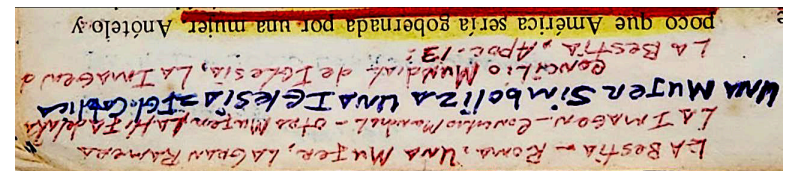 LA BESTIA - ROMA, UNA MUJER, LA GRAN RAMERA
LA IMAGEN - Concilio Mundial - otra MUJER, La H.
UNA MUJER Simboliza UNA IGLesia = IGL. Católica
Concilio Mundial de Iglesia, La Imagen d
LA BESTIA, Apoc. 13:
poco que América sería gobernada por una mujer. Anótelo y